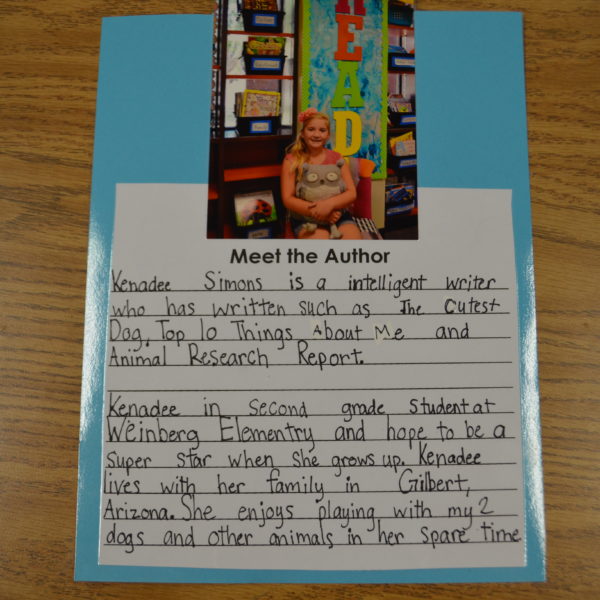 READ
Meet the Author
Kenadee Simons is a intelligent writer
who has written such as The Cutest
Dog, Top 10 Things About Me and
Animal Research Report.
Kenadee in second grade student at
Weinberg Elementry and hope to be a
super star when she grows up. Kenadee
lives with her family in Gilbert,
Arizona. She enjoys playing with my 2
dogs and other animals in her spare time